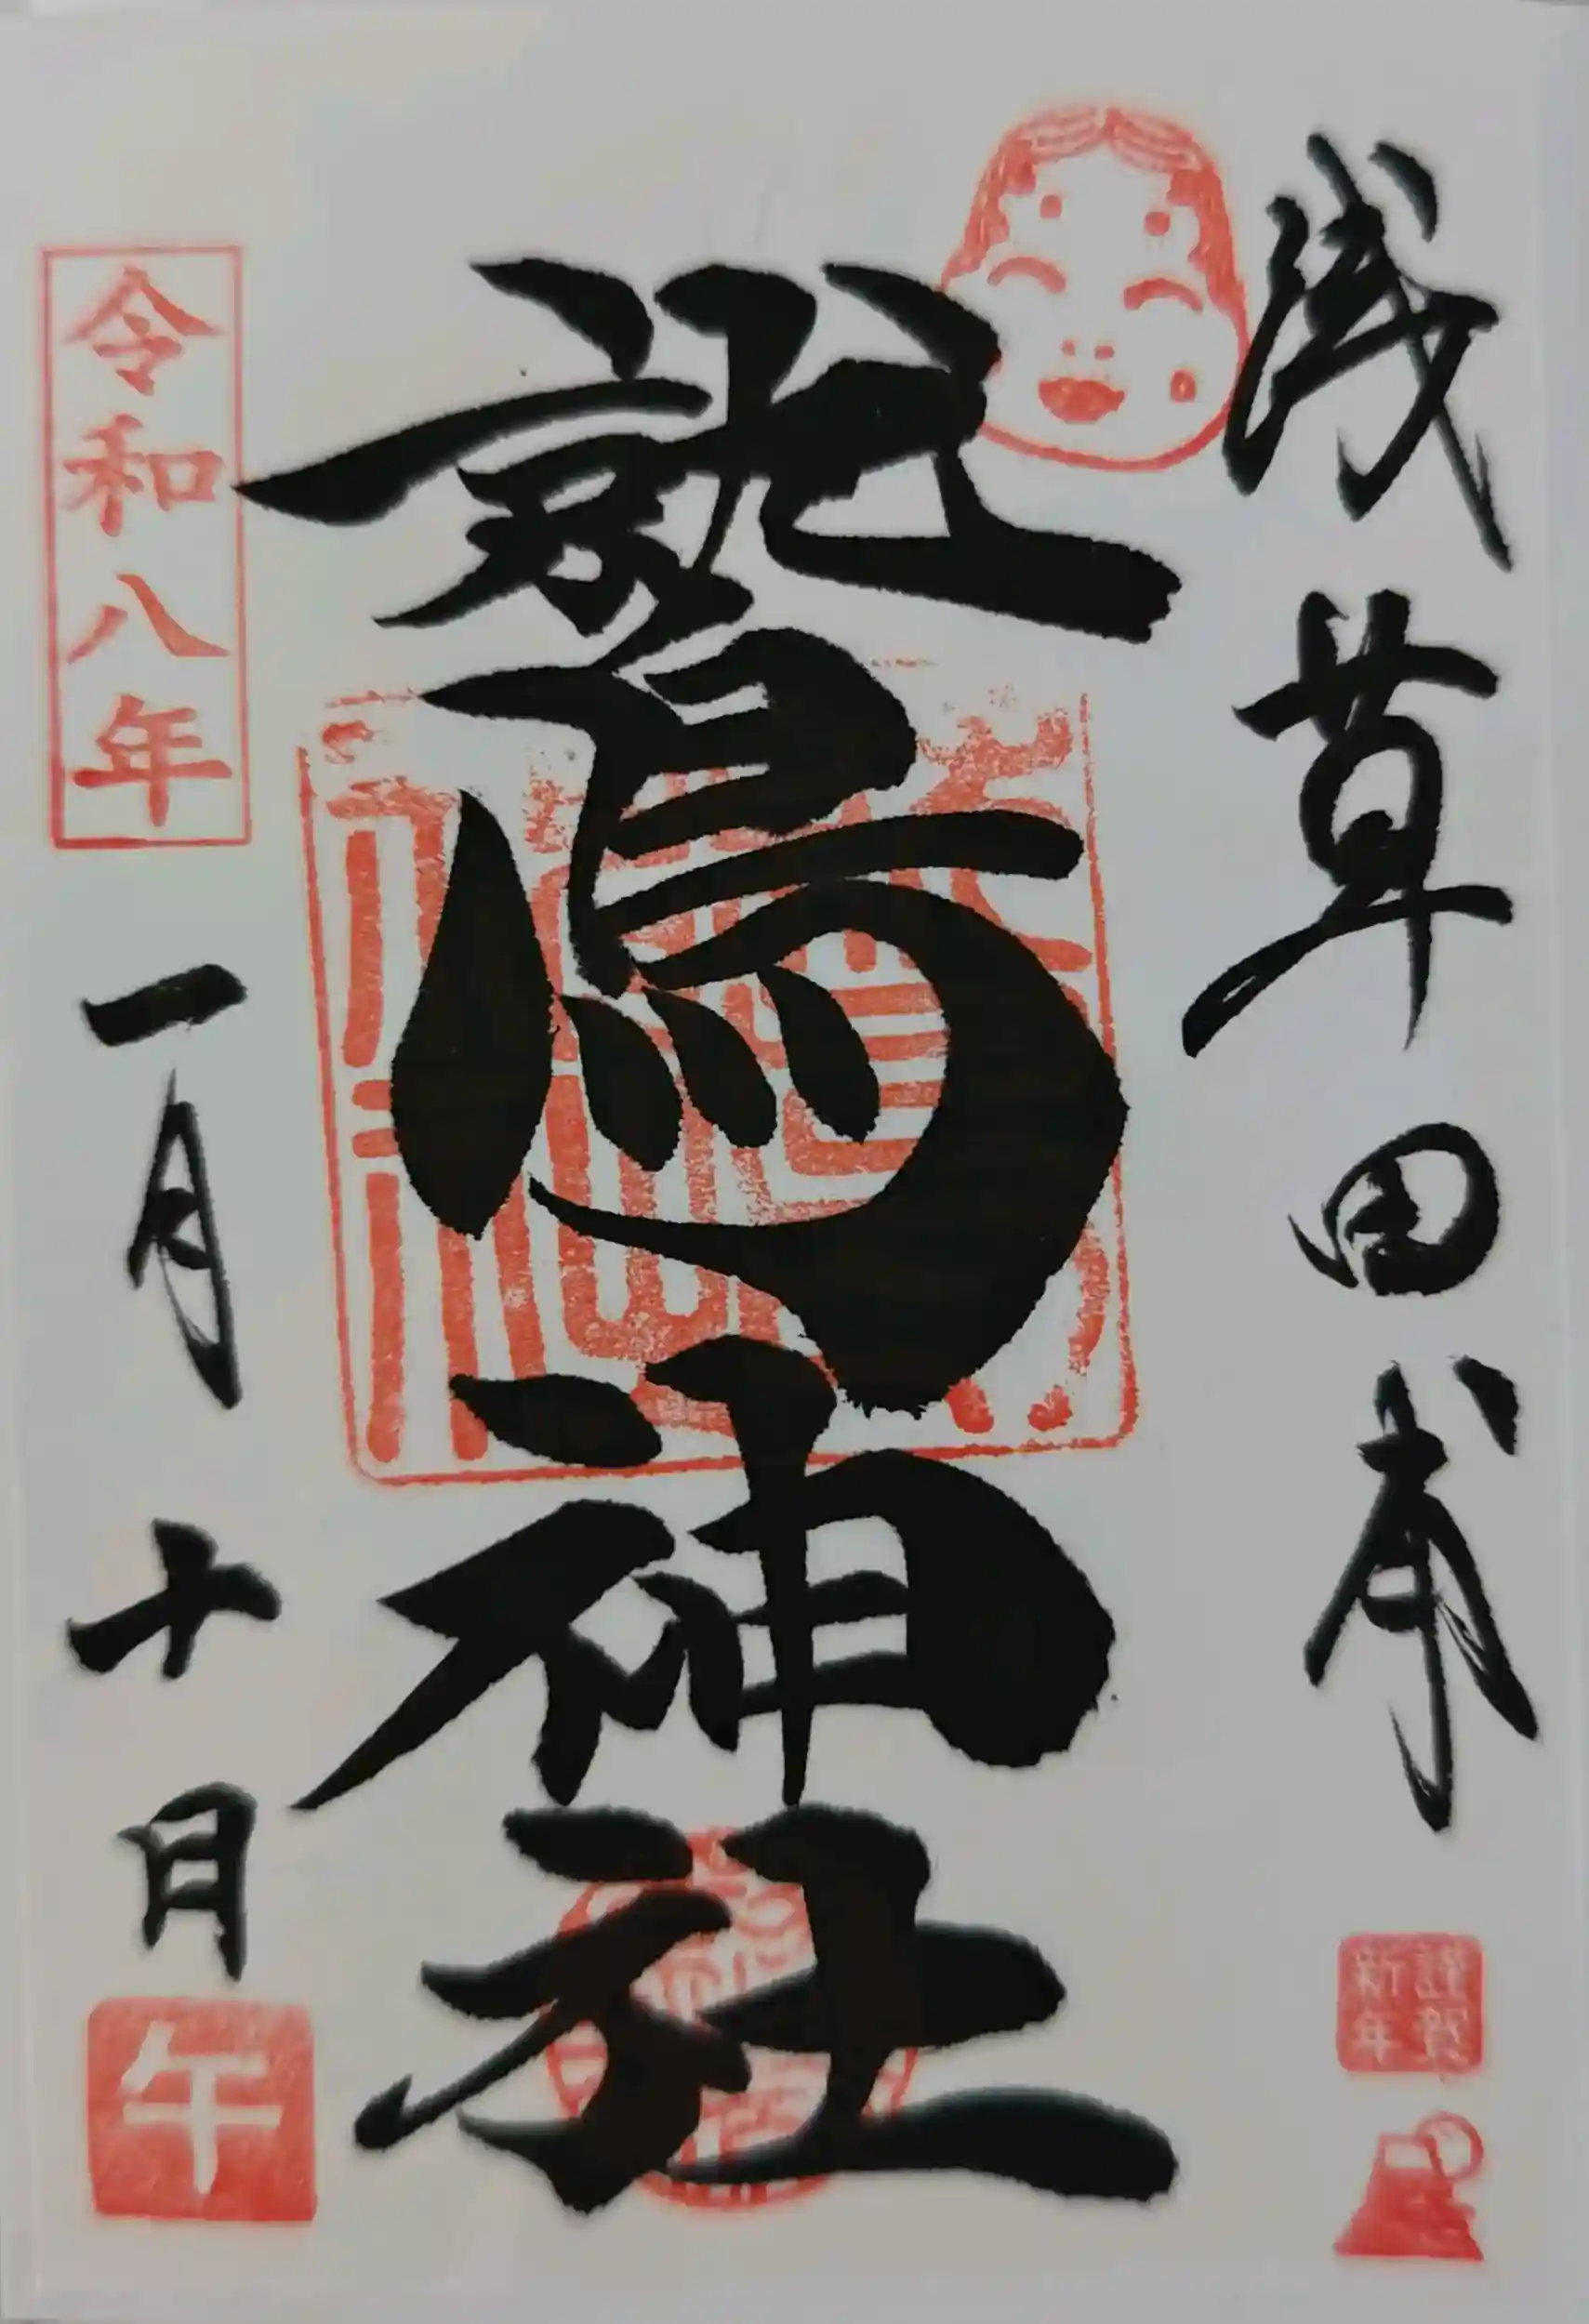 浅草田甫
鷲神社
令和八年
一月十日
謹賀
新年
午